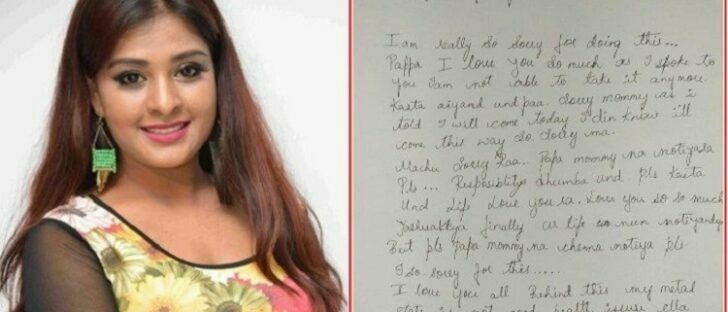 I am really so sorry for doing this...
Pappa I love you so much as I spoke to
you I am not able to take it anymore.
Kasta aiyand und paa. Sorry mommy as i
told I will come today I din know ill
come this way so sorry ma.
Machu sorry Papa mommy na
Pls... und pls kasta
und life love you so so much
finally life
But pls Papa mommy na
I so sorry for this.....
I love you all Behind this my metal
is not good health issuse ella